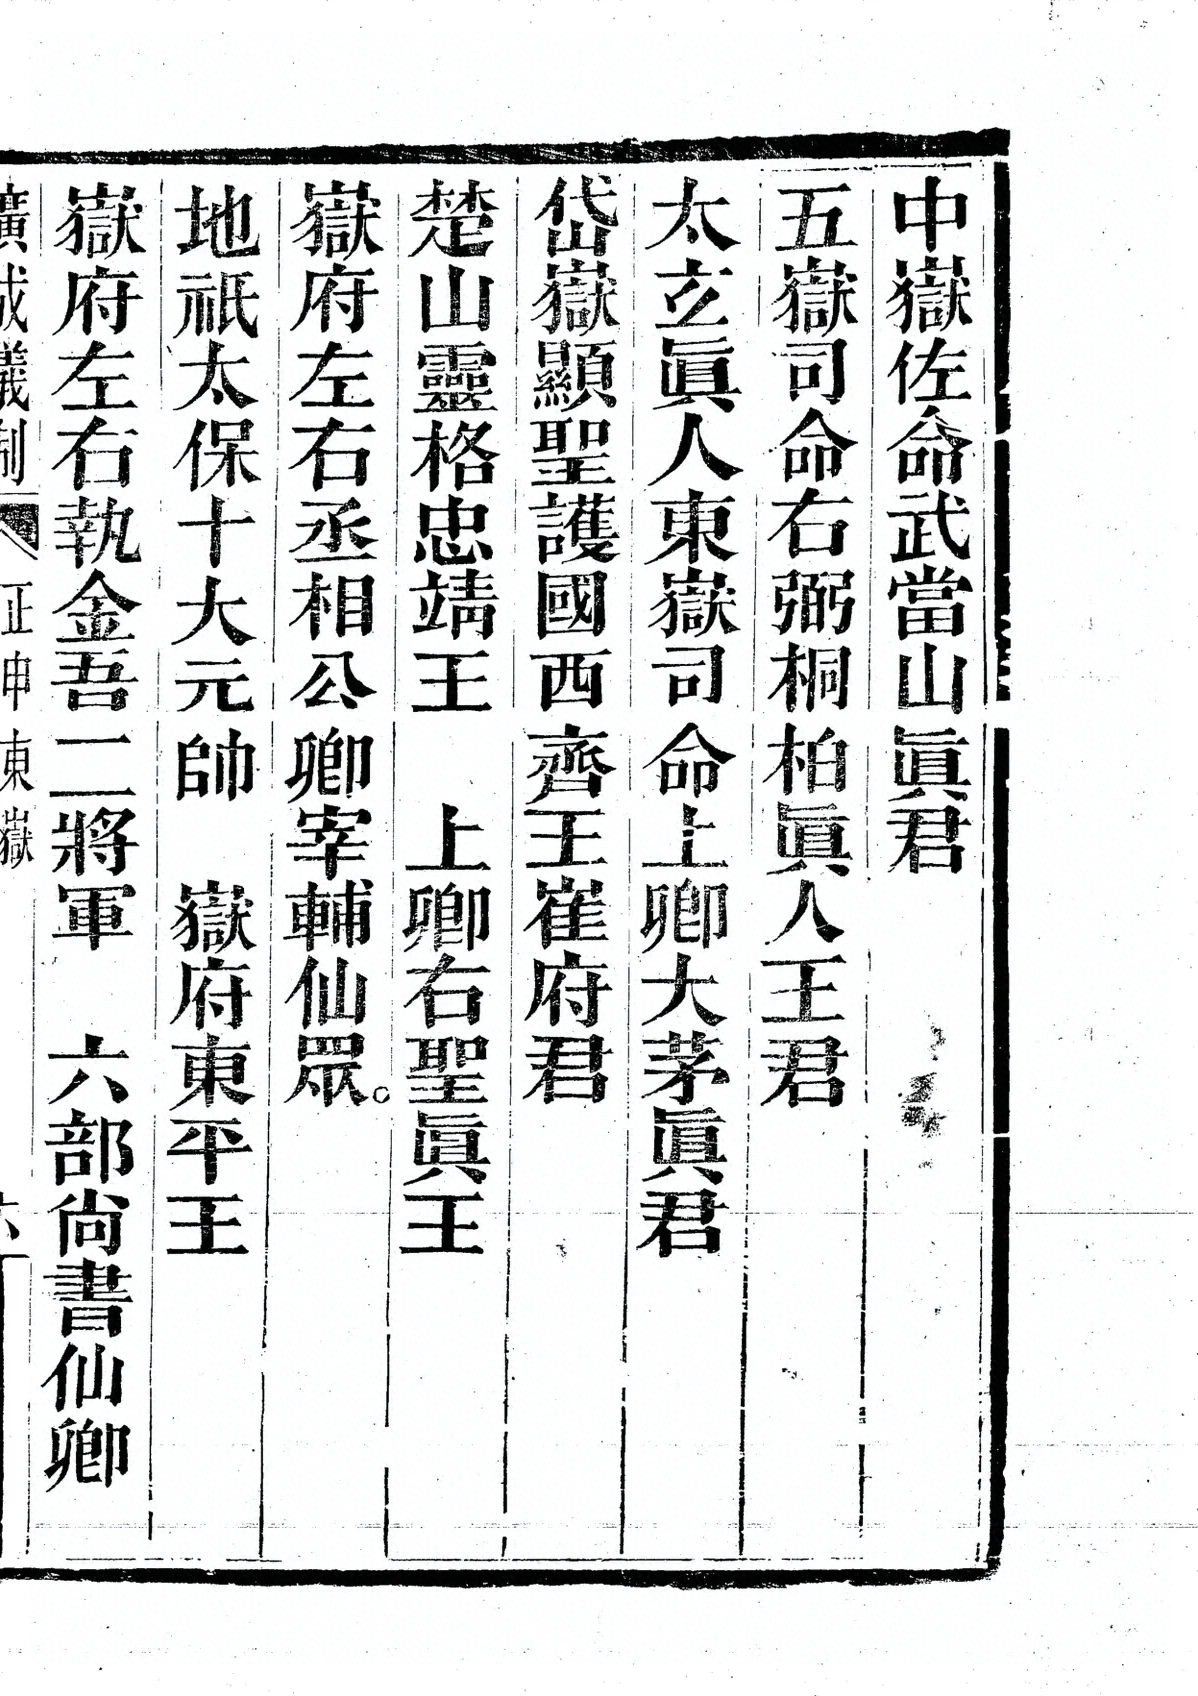 中嶽佐命武當山眞君
五嶽司命右弼桐柏眞人王君
太玄眞人東嶽司命上卿大茅眞君
岱嶽顯聖護國西齊王崔府君
楚山靈格忠靖王　上卿右聖眞王
嶽府左右丞相公卿宰輔仙眾。
地祇太保十大元帥　嶽府東平王
嶽府左右執金吾二將軍　六部尚書仙卿
廣成儀制　正申東嶽　六